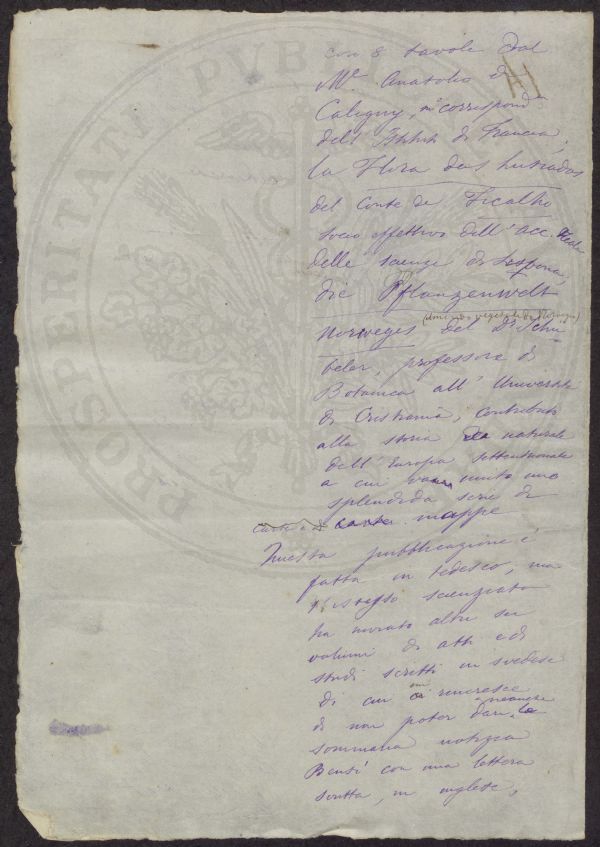 con 8 tavole dal
Mse Anatolio di
Caligny, corrispond
dell' Istitt di Francia,
la Flora dos Lusiadas
del Conte de Ficalho
Socio effettivo dell' acc. Reale
delle scienze di Lisbona,
die Pflanzenwelt
(il mondo vegetale di Norvegia)
Norweges del Dr Schu-
beler, professore di
Botanica all' Università
di Cristiania, contributo
alla storia naturale
dell' Europa settentrionale
a cui unita una
splendida serie di
carte mappe
Questa pubblicazione è
fatta in tedesco, ma
stesso scienziato
ha inviato altri sei
volumi di atti e di
studi scritti in svedese
di cui mi rincresce
di non poter dare neanche
sommaria notizia
Bensì con una lettera
scritta, in inglese,
PROSPERITATI PVBL